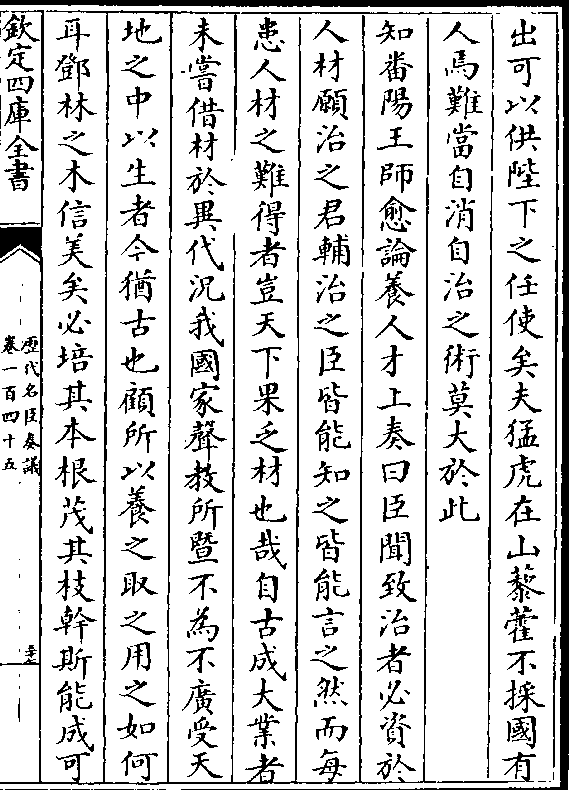 出可以供陛下之任使矣夫猛虎在山藜藿不採國有
人焉難當自消自治之術莫大於此
知番陽王師愈論養人才上奏曰臣聞致治者必資於
人材願治之君輔治之臣皆能知之皆能言之然而每
患人材之難得者豈天下果乏材也哉自古成大業者
未嘗借材於異代況我國家聲教所暨不為不廣受天
地之中以生者今猶古也顧所以養之取之用之如何
耳鄧林之木信美矣必培其本根茂其枝幹斯能成可
欽定四庫全書
歷代名臣奏議
卷一百四十五